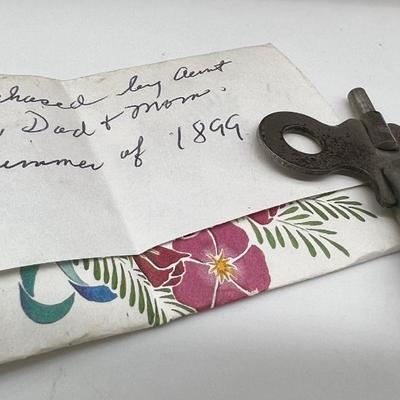 chased by Aunt
, Dad & Mom.
ummer of 1899